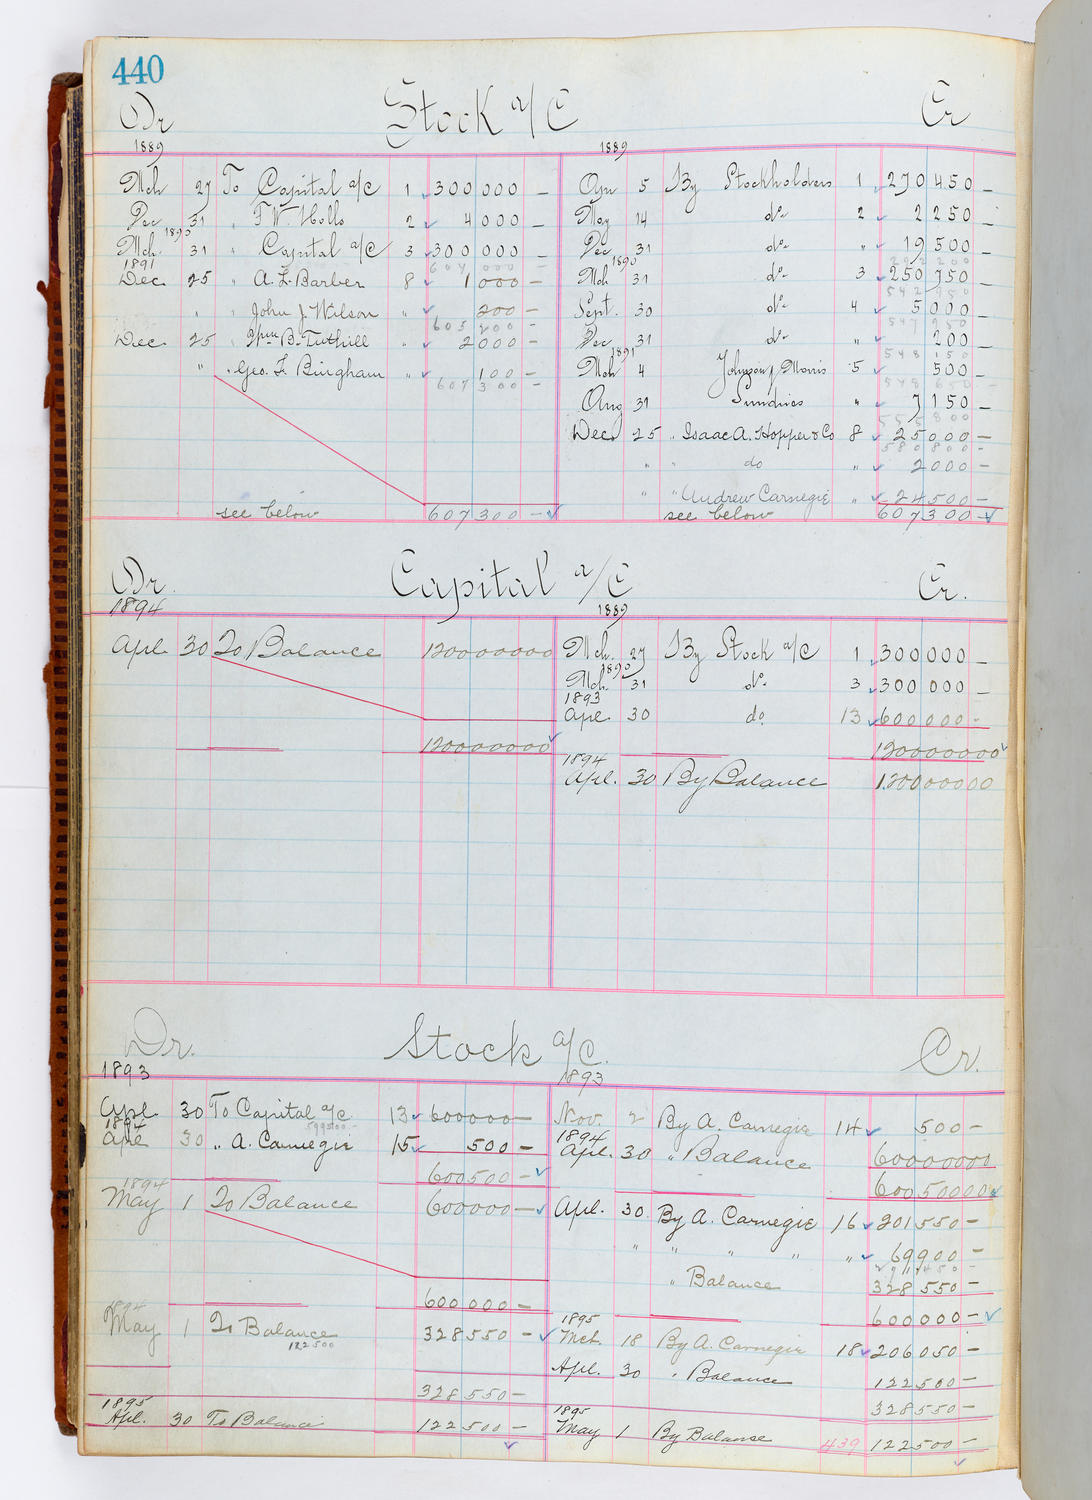 440
Dr Stock a/c Cr
1889 1889
Mch 27 To Capital a/c 1 300 000 —
Dec 31 " F. W. Holls 2 4 000 —
1890
Mch 31 " Capital a/c 3 300 000 —
604 000 —
1891
Dec 25 " A. L. Barber 8 1 000 —
" " John J Wilson " 200 —
605 200 —
Dec 25 " Wm B. Tuthill " 2 000 —
" " Geo. F. Bingham " 100 —
607 300 —
see below 607 300 —
Apr 5 By Stockholders 1 270 450 —
May 14 do 2 2 250 —
Dec 31 do " 19 500 —
292 200
1890
Mch 31 do 3 250 750 —
542 950
Sept. 30 do 4 5 000 —
547 950
Dec 31 do " 200 —
548 150
1891
Mch 4 Johnson J. Morris 5 500 —
548 650 —
Aug 31 Sundries " 7 150 —
555 800
Dec 25 " Isaac A. Hopper & Co 8 25 000 —
580 800 —
" " do " 2 000 —
" " Andrew Carnegie " 24 500 —
see below 607 300 —
Dr. Capital a/c Cr.
1894 1889
Apl. 30 To Balance 1200000 00
1200000 00
Mch. 27 By Stock a/c 1 300 000 —
1890
Mch. 31 do. 3 300 000 —
1893
Apl. 30 do. 13 600 000 —
1200000 00
1894
Apl. 30 By Balance 1200000 00
Dr. Stock a/c. Cr.
1893 1893
Apl. 30 To Capital a/c 13 600000 —
599500 —
1894
Apl 30 " A. Carnegie 15 500 —
600500 —
1894
May 1 To Balance 600000 —
600 000 —
1894
May 1 To Balance 328550 —
122500
328 550 —
1895
Apl. 30 To Balance 122 500 —
Nov. 2 By A. Carnegie 14 500 —
1894
Apl. 30 " Balance 600000 00
600500 00
Apl. 30. By A. Carnegie 16 201550 —
" " " " " 69900 —
271450 —
" Balance 328 550 —
600000 —
1895
Mch. 18 By A. Carnegie 18 206050 —
Apl. 30 " Balance 122500 —
328550 —
1895
May 1 By Balance 439 122500 —